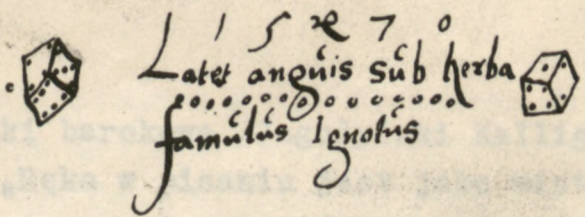 1 5 7 0
Latet anguis sub herba
famulus Ignotus